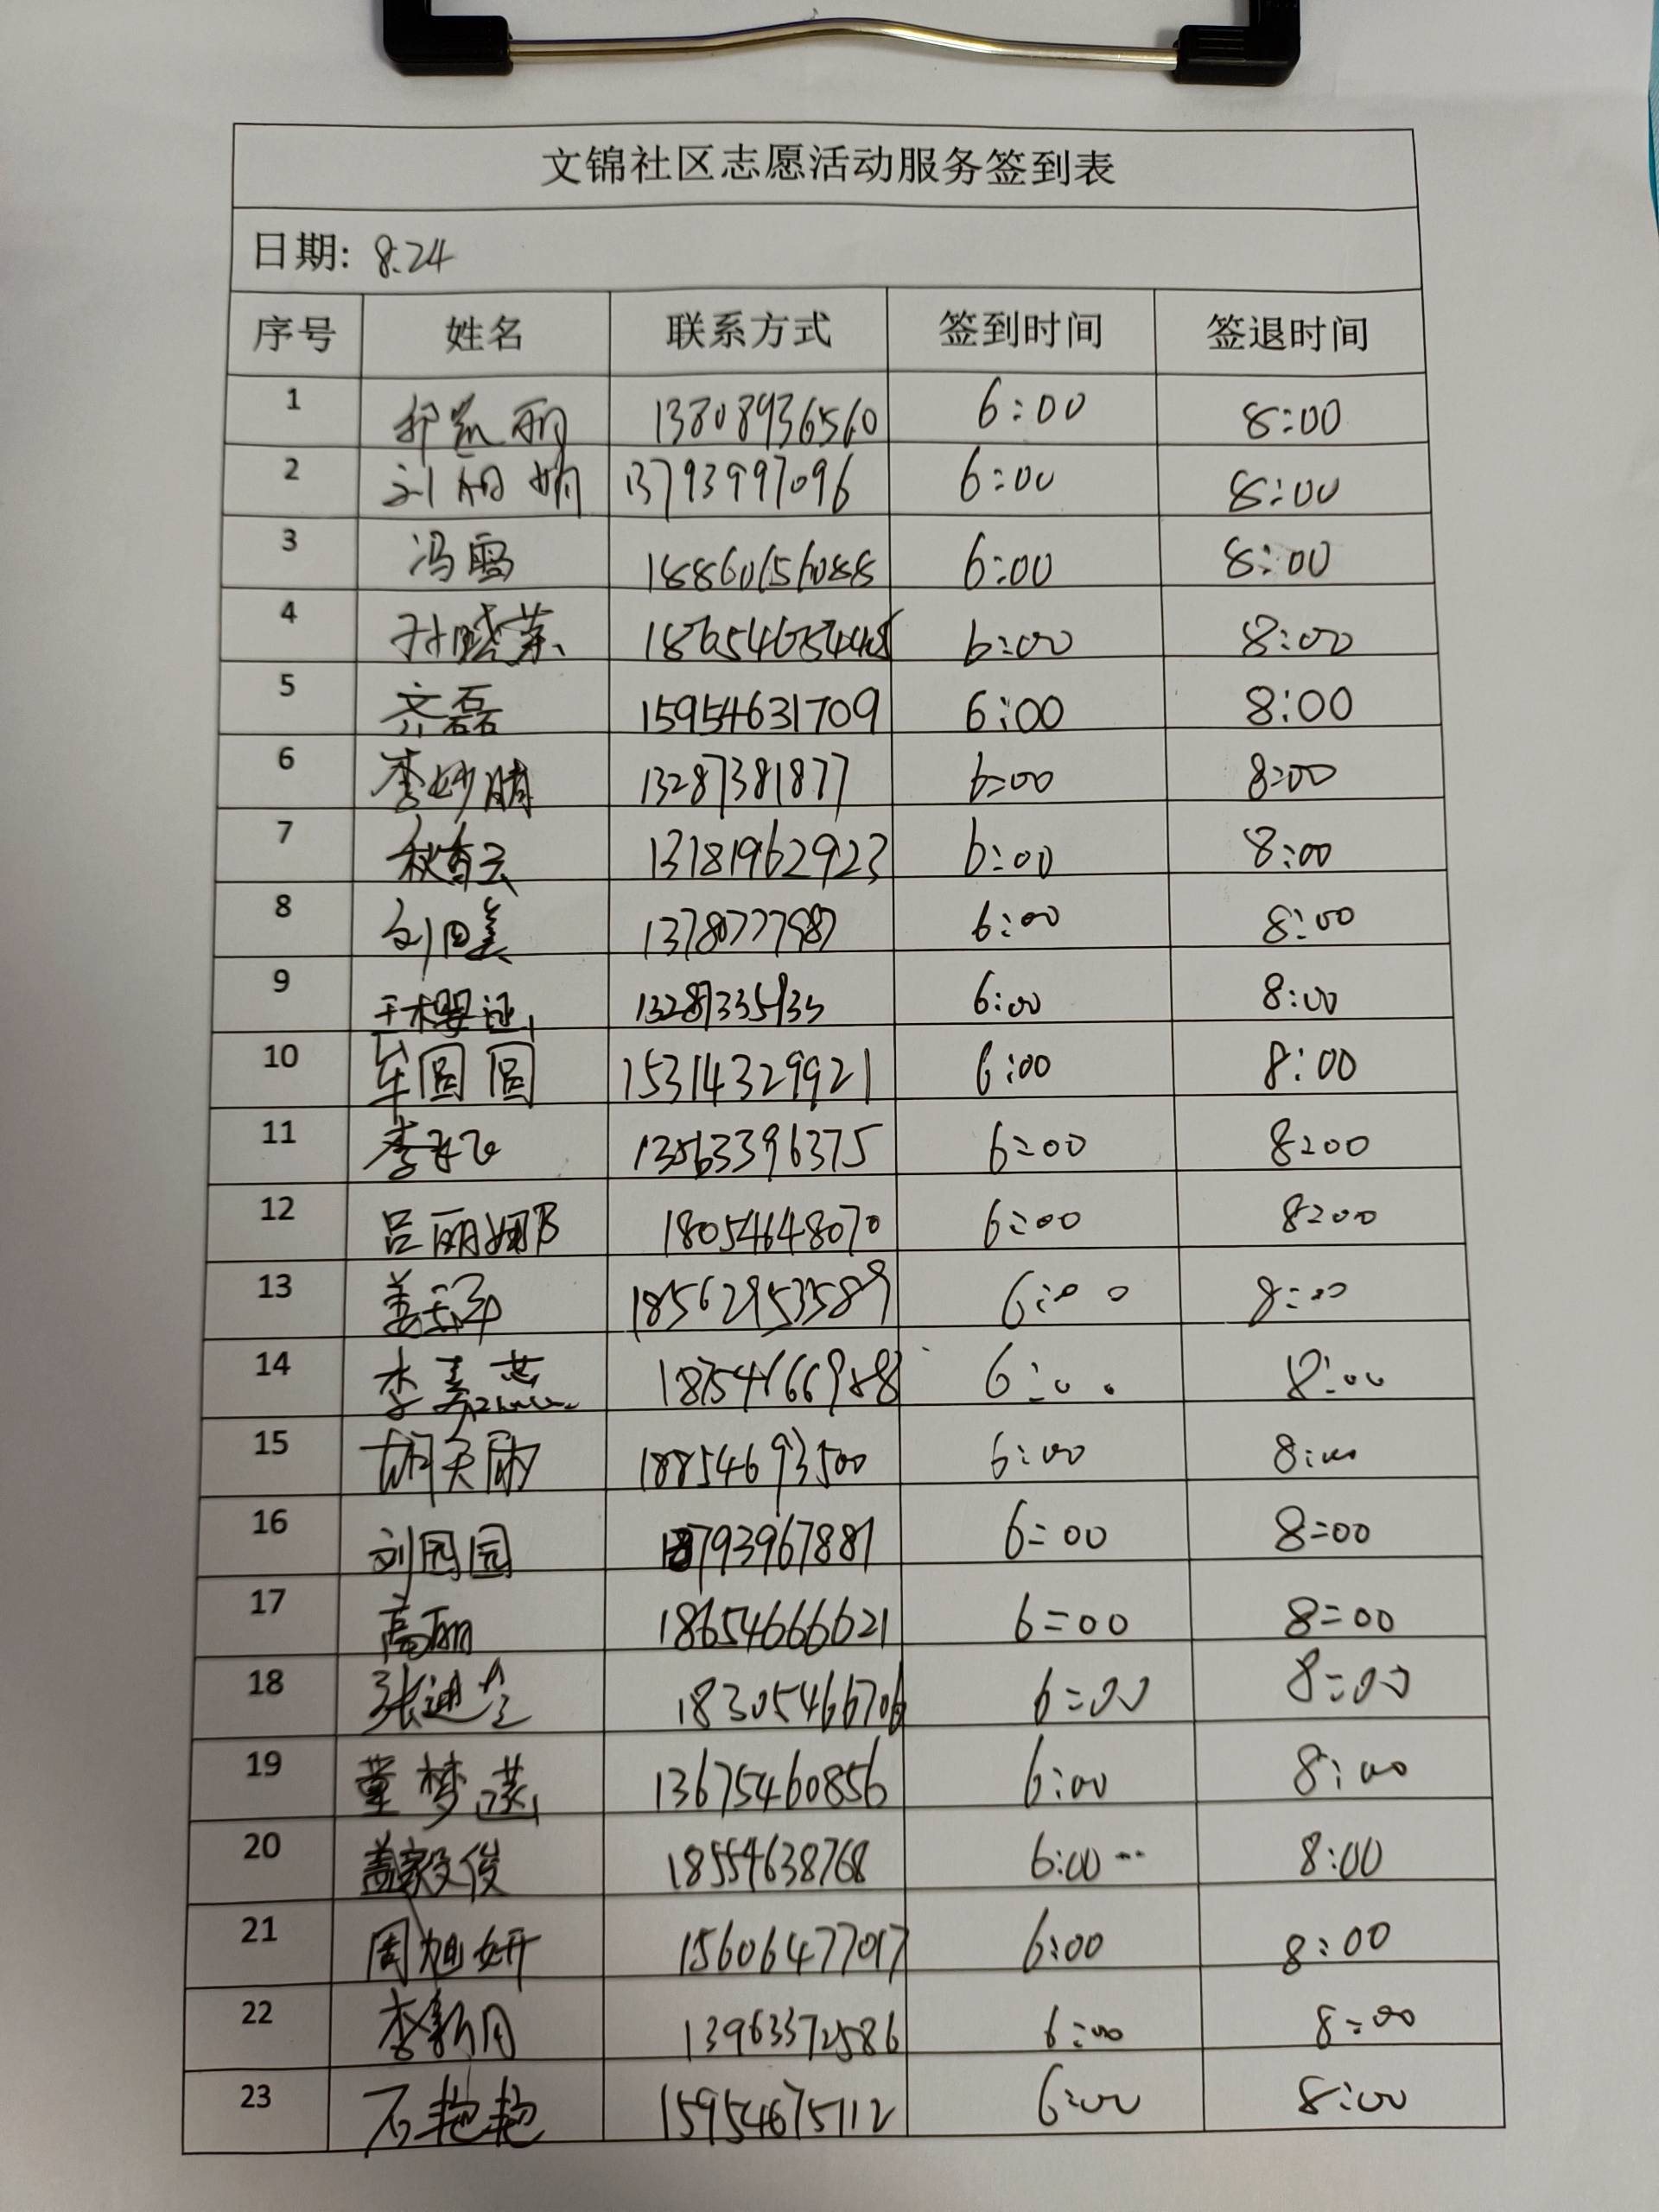 文锦社区志愿活动服务签到表
日期: 8.24
序号 姓名 联系方式 签到时间 签退时间
1 13808936560 6:00 8:00
2 13793997096 6:00 8:00
3 冯雪 18860656088 6:00 8:00
4 孙晓荣 6:00 8:00
5 齐磊 15954631709 6:00 8:00
6 李妙晴 13287381877 6:00 8:00
7 秋香云 13181962923 6:00 8:00
8 13780777987 6:00 8:00
9 6:00 8:00
10 车圆圆 15314329921 6:00 8:00
11 李飞飞 13563396375 6:00 8:00
12 吕丽娜 18054648070 6:00 8:00
13 18562953589 6:00 8:00
14 李美燕 6:00 8:00
15 胡天雨 18854693500 6:00 8:00
16 刘园园 13793967881 6:00 8:00
17 高丽 18654666621 6:00 8:00
18 18305466706 6:00 8:00
19 董梦 13675460856 6:00 8:00
20 盖毅俊 18554638768 6:00 8:00
21 周旭妍 15606477017 6:00 8:00
22 李新月 13963372586 6:00 8:00
23 石艳艳 15954675112 6:00 8:00